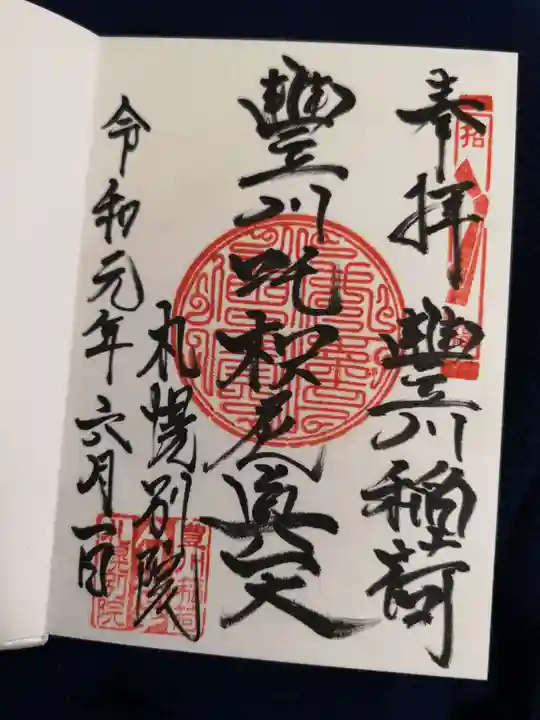 奉拝
豊川稲荷
豊川吒枳尼眞天
札幌別院
令和元年六月一日